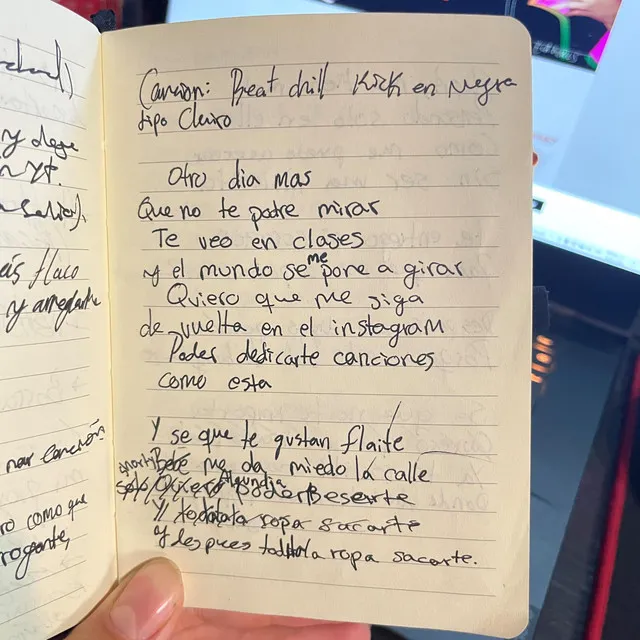 y dege
flaco
nar canción
ro como que
rogante,
Cancion: Beat chill Kick en Negra
tipo Cleiro
Otro dia mas
Que no te podre mirar
Te veo en clases
y el mundo se me pone a girar
Quiero que me siga
de vuelta en el instagram
Poder dedicarte canciones
como esta
Y se que te gustan flaite
Bebé me da miedo la calle
solo Quiero Algundia poder Besarte
Y toda la ropa sacarte
Y despues toda la ropa sacarte.